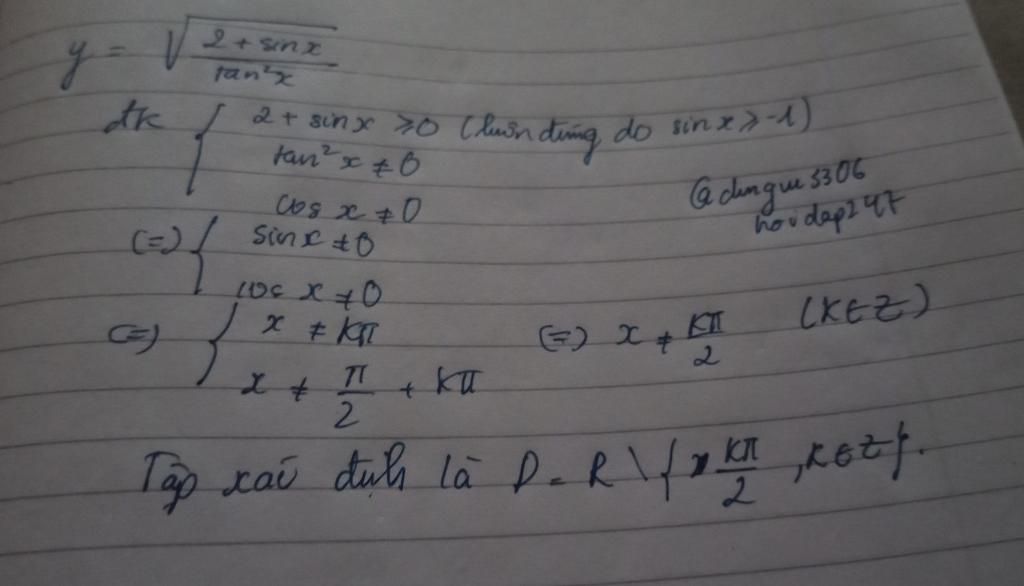 y = √(2 + sinx / tan²x)
đk { 2 + sinx ≥ 0 (luôn đúng do sinx ≥ -1)
tan²x ≠ 0
cos x ≠ 0
@dungvu3306
hoidap247
(=) { sinx ≠ 0
cos x ≠ 0
(=) { x ≠ kπ (=) x ≠ kπ/2 (K∈Z)
x ≠ π/2 + kπ
Tập xác định là D = R \ { kπ/2 , K∈Z}.